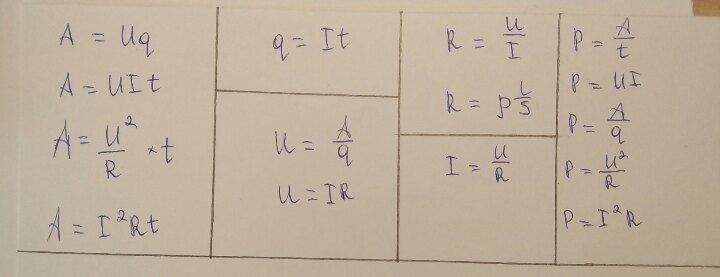 A = Uq
A = UIt
A = U²/R *t
A = I²Rt
q = It
U = A/q
U = IR
R = U/I
R = ρ L/S
I = U/R
P = A/t
P = UI
P = A/q
P = U²/R
P = I²R